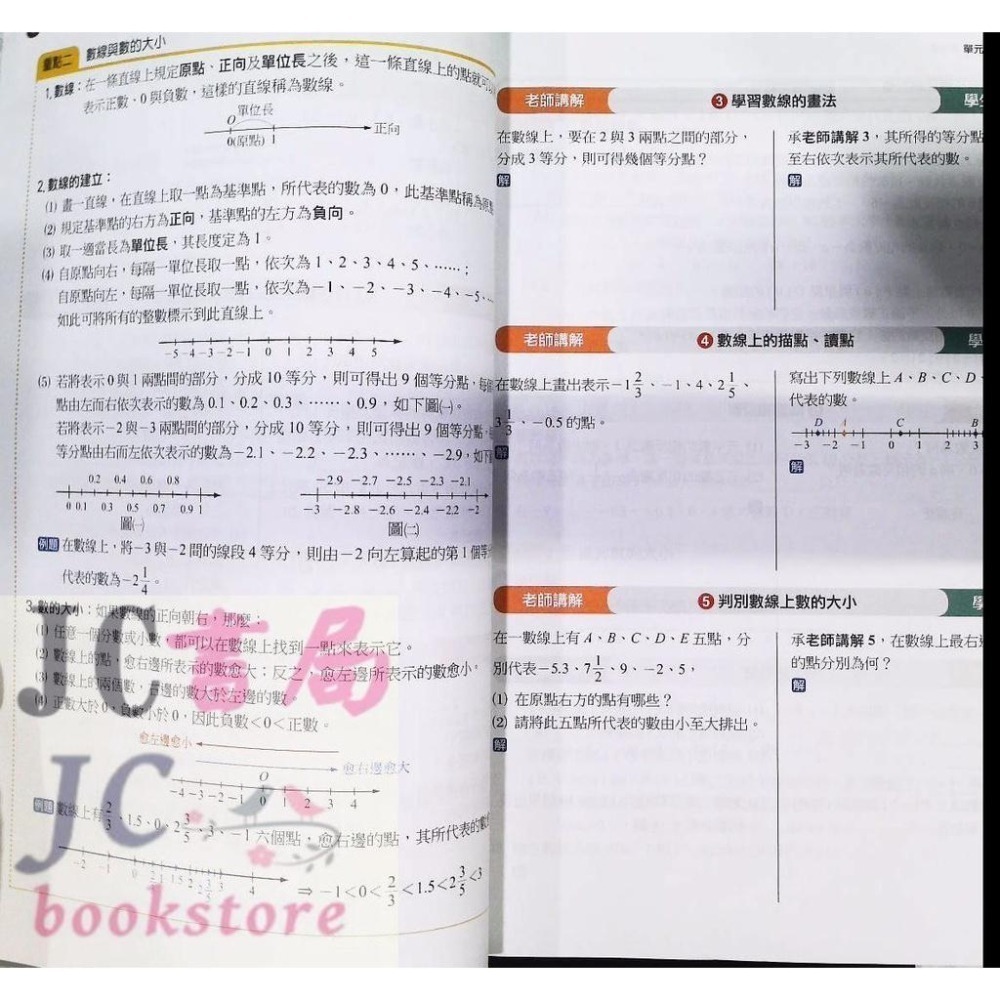 重點二 數線與數的大小
1.數線：在一條直線上規定原點、正向及單位長之後，這一條直線上的點就可
表示正數、0與負數，這樣的直線稱為數線。
單位長
O
0(原點) 1 正向
2.數線的建立：
(1) 畫一直線，在直線上取一點為基準點，所代表的數為0，此基準點稱為原點
(2) 規定基準點的右方為正向，基準點的左方為負向。
(3) 取一適當長為單位長，其長度定為1。
(4) 自原點向右，每隔一單位長取一點，依次為1、2、3、4、5、……；
自原點向左，每隔一單位長取一點，依次為－1、－2、－3、－4、－5、
如此可將所有的整數標示到此直線上。
-5 -4 -3 -2 -1 0 1 2 3 4 5
(5) 若將表示0與1兩點間的部分，分成10等分，則可得出9個等分點，
點由左而右依次表示的數為0.1、0.2、0.3、……、0.9，如下圖㈠。
若將表示－2與－3兩點間的部分，分成10等分，則可得出9個等分點，
等分點由右而左依次表示的數為－2.1、－2.2、－2.3、……、－2.9，如下
0.2 0.4 0.6 0.8
0 0.1 0.3 0.5 0.7 0.9 1
圖㈠
-2.9 -2.7 -2.5 -2.3 -2.1
-3 -2.8 -2.6 -2.4 -2.2 -2
圖㈡
例題 在數線上，將－3與－2間的線段4等分，則由－2向左算起的第1個等
代表的數為－2 1/4。
3.數的大小：如果數線的正向朝右，那麼：
(1) 任意一個分數或小數，都可以在數線上找到一點來表示它。
(2) 數線上的點，愈右邊所表示的數愈大；反之，愈左邊所表示的數愈小。
(3) 數線上的兩個數，右邊的數大於左邊的數。
(4) 正數大於0，負數小於0，因此負數<0<正數。
愈左邊愈小
愈右邊愈大
O
-4 -3 -2 -1 0 1 2 3 4
例題 數線上有2/3、1.5、0、2 3/5、3、－1六個點，愈右邊的點，其所代表的數
-2 -1 0 2/3 1 1.5 2 2 3/5 3 4
⇒ －1<0<2/3<1.5<2 3/5<3
JC書局
JC
bookstore
單元
老師講解 3 學習數線的畫法 學
在數線上，要在2與3兩點之間的部分，
分成3等分，則可得幾個等分點？
解
承老師講解3，其所得的等分點
至右依次表示其所代表的數。
解
老師講解 4 數線上的描點、讀點 學
在數線上畫出表示－1 2/3、－1、4、2 1/5、
3 1/3、－0.5的點。
解
寫出下列數線上A、B、C、D、
代表的數。
D A C B
-3 -2 -1 0 1 2 3
解
老師講解 5 判別數線上數的大小 學
在一數線上有A、B、C、D、E五點，分
別代表－5.3、7 1/2、9、－2、5，
(1) 在原點右方的點有哪些？
(2) 請將此五點所代表的數由小至大排出。
解
承老師講解5，在數線上最右
的點分別為何？
解